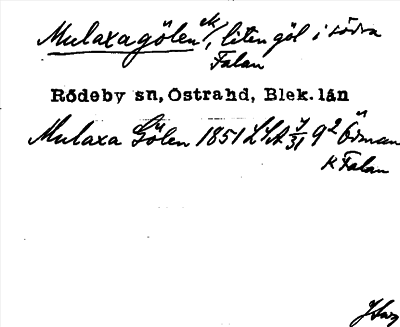 Mulaxagölen ek/, liten göl i södra
Falan
Rödeby sn, Östra hd, Blek. län
Mulaxa Gölen 1851 LSA 7/31 9² Ödman
K Falan